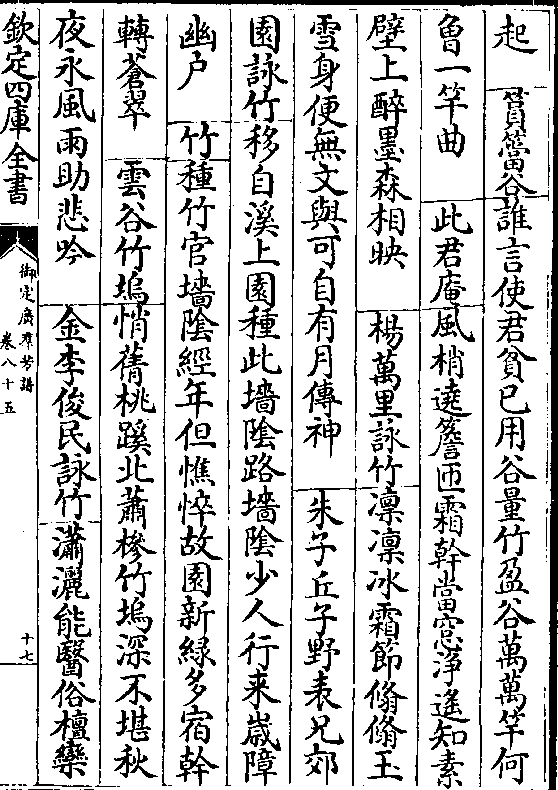 起　篔簹谷誰言使君貧已用谷量竹盈谷萬萬竿何
曾一竿曲　此君庵風梢遶簷匝霜幹當窓淨遙知素
壁上醉墨森相映　楊萬里詠竹凛凛冰霜節翛翛玉
雪身便無文與可自有月傳神　朱子丘子野表兄郊
園詠竹移自溪上園種此墻陰路墻陰少人行来嵗障
幽户　竹種竹官墻陰經年但憔悴故園新緑多宿幹
轉蒼翠　雲谷竹塢悄蒨桃蹊北蕭槮竹塢深不堪秋
夜永風雨助悲吟　金李俊民詠竹瀟灑能醫俗檀欒
欽定四庫全書
御定廣羣芳譜
卷八十五
十七